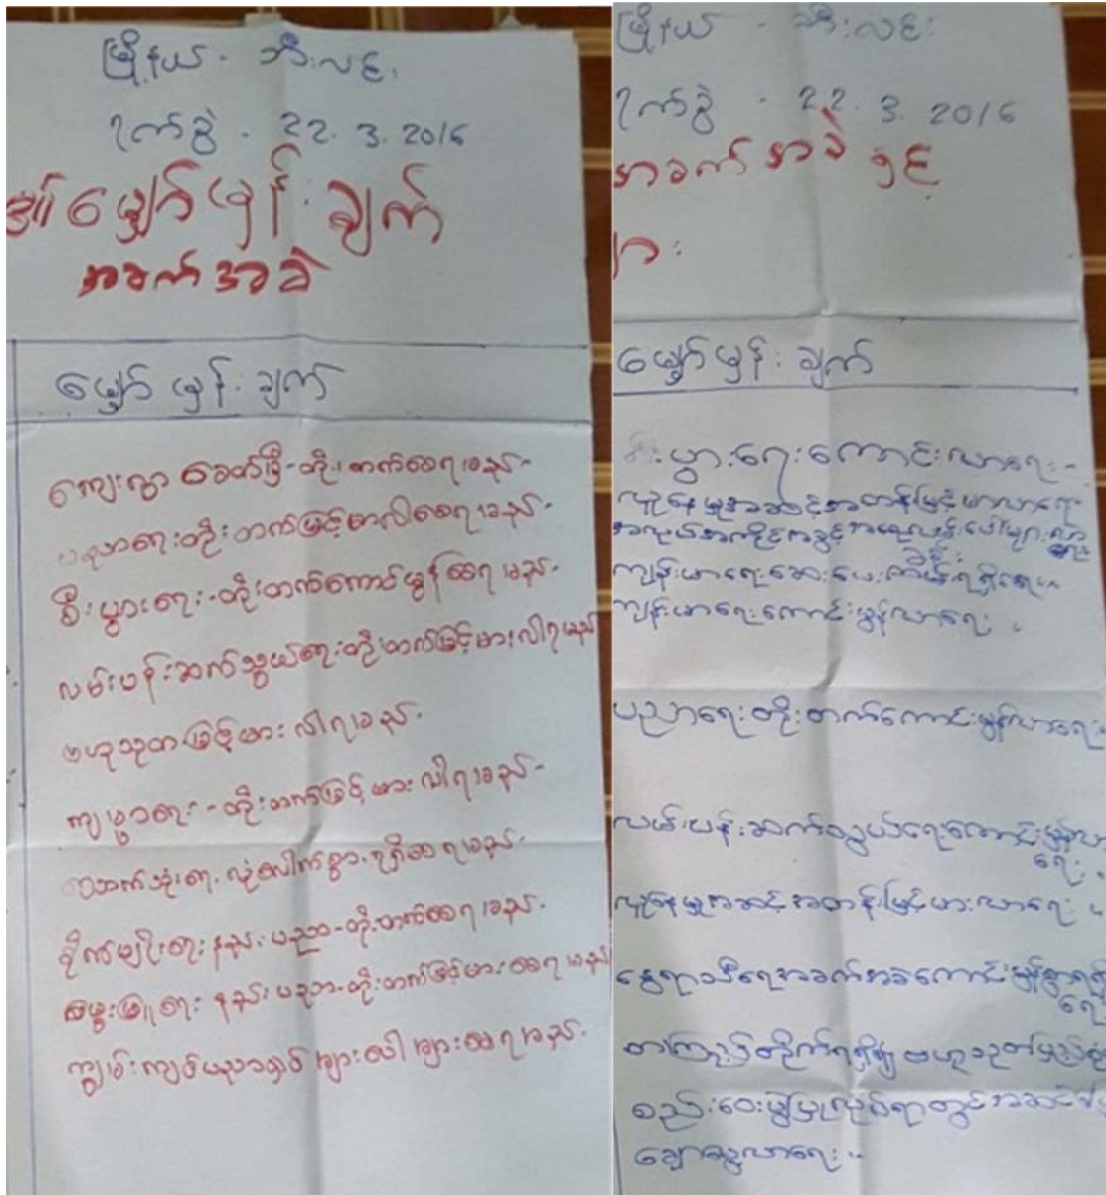 မြို့နယ် - ဘီးလင်း
ရက်စွဲ - 22. 3. 2016
မျှော်မှန်းချက်
အခက်အခဲ
မျှော်မှန်းချက်
ကျေးရွာ တိုးတက်စေရမည်-
ပညာရေးတိုးတက်မြင့်မားလာစေရမည်-
စီးပွားရေး-တိုးတက်ကောင်းမွန်စေရမည်-
လမ်းပန်းဆက်သွယ်ရေးတိုးတက်မြင့်မားလာရမည်
ဗဟုသုတမြင့်မားလာရမည်-
ကျန်းမာရေး-တိုးတက်မြင့်မားလာရမည်-
လုံလောက်စွာရရှိစေရမည်-
စိုက်ပျိုးရေးနည်းပညာ-တိုးတက်စေရမည်-
မွေးမြူရေးနည်းပညာ-တိုးတက်မြင့်မားစေရမည်
ကျွမ်းကျင်ပညာရှင်များပေါများစေရမည်-
မြို့နယ် - ဘီးလင်း
ရက်စွဲ - 22. 3. 2016
အခက်အခဲ နှင့်
မျှော်မှန်းချက်
စီးပွားရေးကောင်းလာရေး-
လူနေမှုအဆင့်အတန်းမြင့်မားလာရေး
အလုပ်အကိုင်အခွင့်အလမ်းပေါများလာရေး
ကျန်းမာရေးဆေးပေးခန်းရရှိရေး။
ကျန်းမာရေးကောင်းမွန်လာရေး။
ပညာရေးတိုးတက်ကောင်းမွန်လာရေး
လမ်းပန်းဆက်သွယ်ရေးကောင်းမွန်လာ
ရေး။
လူနေမှုအဆင့်အတန်းမြင့်မားလာရေး။
နွေရာသီရေအခက်အခဲကောင်းမွန်စွာရရှိ
ရေး
စာကြည့်တိုက်ရရှိ၍ ဗဟုသုတ
စည်းဝေးပွဲပြုလုပ်ရာတွင်အဆင်
ချောမွေ့လာရေး။